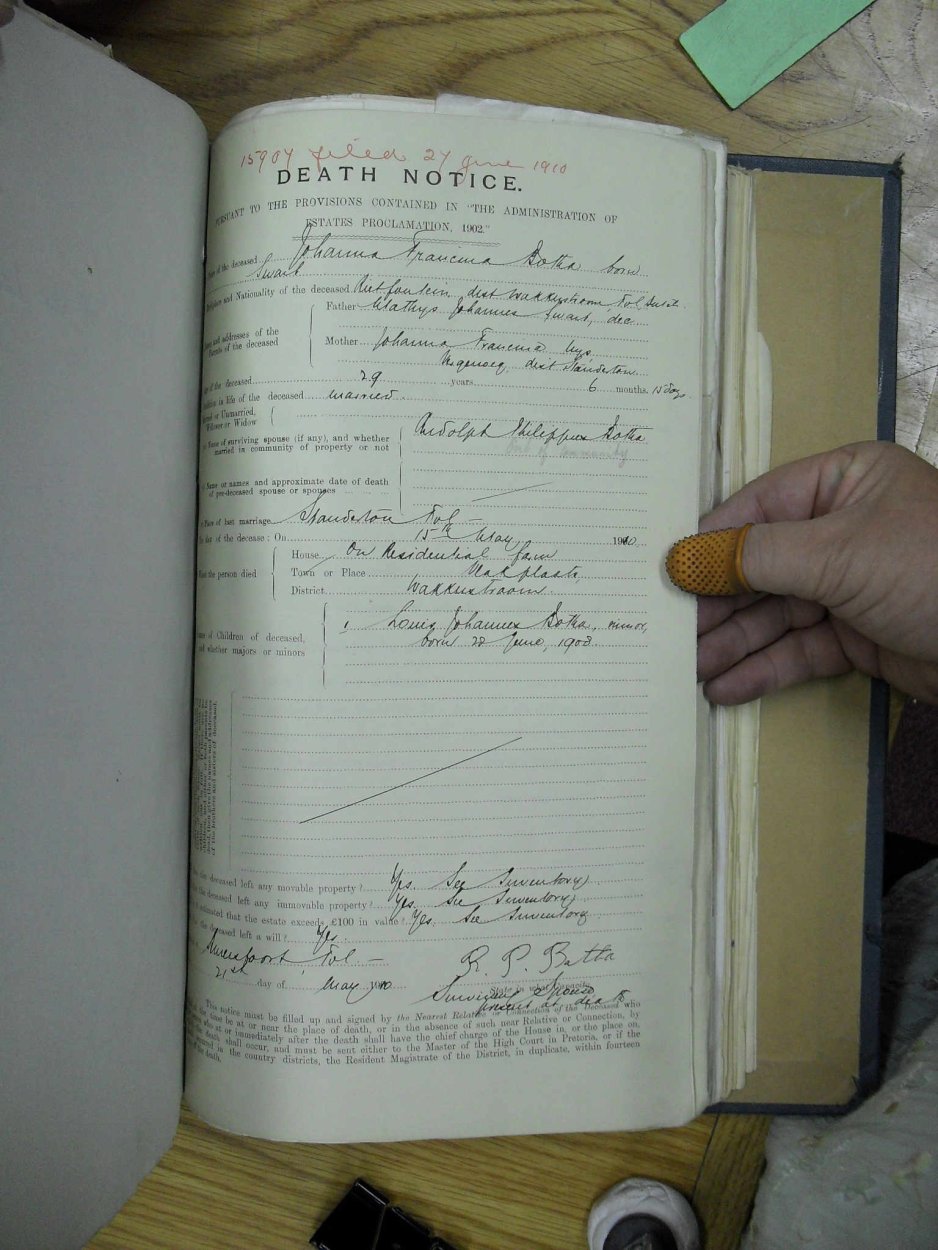 15904 filed 27 June 1910
DEATH NOTICE.
PURSUANT TO THE PROVISIONS CONTAINED IN "THE ADMINISTRATION OF
ESTATES PROCLAMATION, 1902."
of the deceased Johanna Francina Botha born
Swart
and Nationality of the deceased dist Wakkerstroom Tvl
Father Mathys Johannes Swart, dec
and addresses of the
Parents of the deceased
Mother Johanna Francina
dist Standerton
of the deceased 29 years 6 months 15 days
in life of the deceased married
or Unmarried,
Widower or Widow
Name of surviving spouse (if any), and whether
married in community of property or not
Rudolph Philippus Botha
out of Community
Name or names and approximate date of death
of pre-deceased spouse or spouses
Place of last marriage Standerton Tvl
day of the decease: On 15th May 1910
the person died
House On Residential farm
Town or Place Vlakplaats
District Wakkerstroom
of Children of deceased,
and whether majors or minors
1 Louis Johannes Botha, minor,
born 28 June, 1908
of the brothers and sisters of deceased.
the deceased left any movable property? Yes. See Inventory
the deceased left any immovable property? Yes. See Inventory
estimated that the estate exceeds £100 in value? Yes. See Inventory
the deceased left a will? Yes.
Amersfoort, Tvl
R. P. Botha
21st day of May 1910
State in what capacity
Surviving Spouse
present at death
This notice must be filled up and signed by the Nearest Relative or Connection of the Deceased who
the time be at or near the place of death, or in the absence of such near Relative or Connection, by
who at or immediately after the death shall have the chief charge of the House in, or the place on,
the death shall occur, and must be sent either to the Master of the High Court in Pretoria, or if the
occurred in the country districts, the Resident Magistrate of the District, in duplicate, within fourteen
of the death.